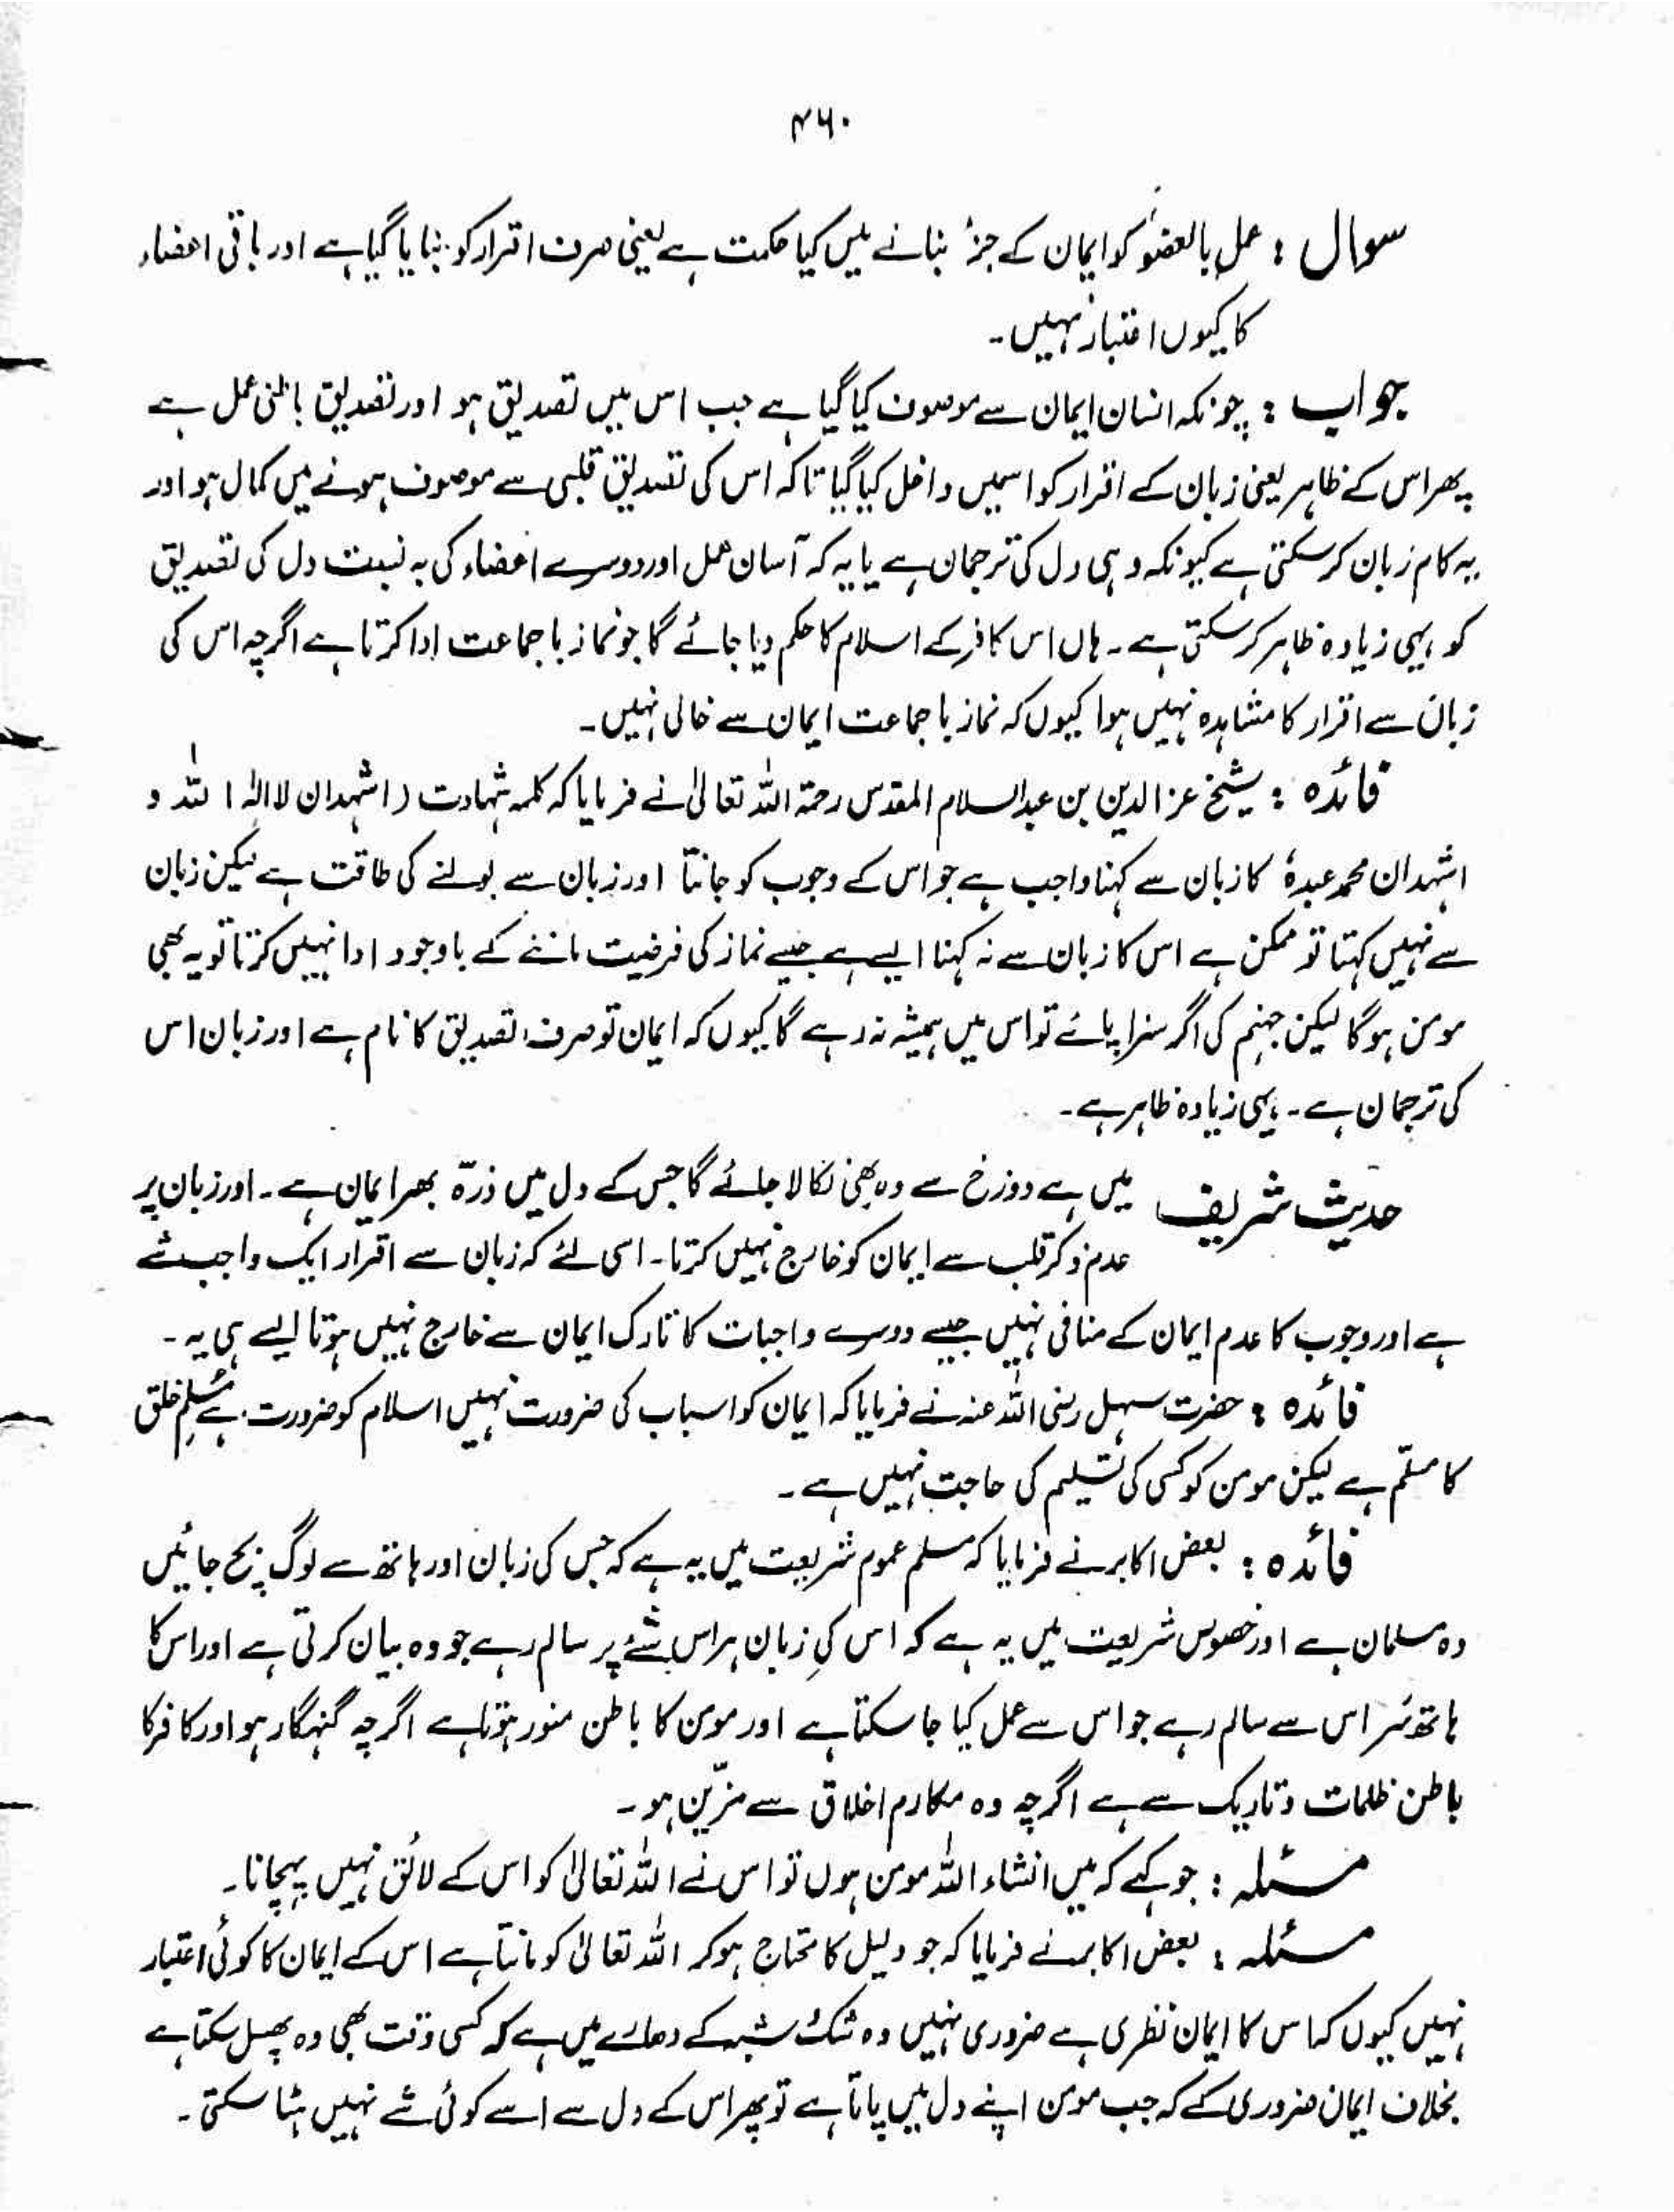 ۴۶۰
سوال : عمل بالعضو کو ایمان کے جزء بنانے میں کیا حکمت ہے یعنی صرف اقرار کو بنایا گیا ہے اور باقی اعضاء
کا کیوں اعتبار نہیں ۔
جواب : چونکہ انسان ایمان سے موصوف کیا گیا ہے جب اس میں تصدیق ہو اور تصدیق باطنی عمل ہے
پھر اس کے ظاہر یعنی زبان کے اقرار کو اسمیں داخل کیا گیا تاکہ اس کی تصدیق قلبی سے موصوف ہونے میں کمال ہو اور
یہ کام زبان کر سکتی ہے کیونکہ وہی دل کی ترجمان ہے یا یہ کہ آسان عمل اور دوسرے اعضاء کی بہ نسبت دل کی تصدیق
کو یہی زیادہ ظاہر کر سکتی ہے ۔ ہاں اس کافر کے اسلام کا حکم دیا جائے گا جو نماز باجماعت ادا کرتا ہے اگرچہ اس کی
زبان سے اقرار کا مشاہدہ نہیں ہوا کیوں کہ نماز باجماعت ایمان سے خالی نہیں ۔
فائدہ : شیخ عز الدین بن عبدالسلام المقدس رحمۃ اللہ تعالیٰ نے فرمایا کہ کلمہ شہادت (اشہدان لا الٰہ الا اللہ و
اشہدان محمد عبدہٗ کا زبان سے کہنا واجب ہے جو اس کے وجوب کو جانتا اور زبان سے بولنے کی طاقت ہے لیکن زبان
سے نہیں کہتا تو ممکن ہے اس کا زبان سے نہ کہنا ایسے ہے جیسے نماز کی فرضیت ماننے کے باوجود ادا نہیں کرتا تو یہ بھی
مومن ہوگا لیکن جہنم کی اگر سزا پائے تو اس میں ہمیشہ نہ رہے گا کیوں کہ ایمان تو صرف تصدیق کا نام ہے اور زبان اس
کی ترجمان ہے ۔ یہی زیادہ ظاہر ہے ۔
حدیث شریف میں ہے دوزخ سے وہ بھی نکالا جائے گا جس کے دل میں ذرّہ بھر ایمان ہے ۔ اور زبان پر
عدم ذکر قلب سے ایمان کو خارج نہیں کرتا ۔ اسی لئے کہ زبان سے اقرار ایک واجب شے
ہے اور وجوب کا عدم ایمان کے منافی نہیں جیسے دوسرے واجبات کا تارک ایمان سے خارج نہیں ہوتا ایسے ہی یہ ۔
فائدہ : حضرت سہل رضی اللہ عنہ نے فرمایا کہ ایمان کو اسباب کی ضرورت نہیں اسلام کو ضرورت ہے مُسلِم خلق
کا مسلّم ہے لیکن مومن کو کسی کی تسلیم کی حاجت نہیں ہے ۔
فائدہ : بعض اکابر نے فرمایا کہ مسلم عموم شریعت میں یہ ہے کہ جس کی زبان اور ہاتھ سے لوگ بچ جائیں
وہ مسلمان ہے اور خصوص شریعت میں یہ ہے کہ اس کی زبان ہر اس شئے پر سالم رہے جو وہ بیان کرتی ہے اور اس کا
ہاتھ ہر اس سے سالم رہے جو اس سے عمل کیا جا سکتا ہے اور مومن کا باطن منور ہوتا ہے اگرچہ گنہگار ہو اور کافر کا
باطن ظلمات و تاریک سے ہے اگرچہ وہ مکارم اخلاق سے مزّین ہو ۔
مسئلہ : جو کہے کہ میں انشاء اللہ مومن ہوں تو اس نے اللہ تعالیٰ کو اس کے لائق نہیں پہچانا ۔
مسئلہ : بعض اکابر نے فرمایا کہ جو دلیل کا محتاج ہو کر اللہ تعالیٰ کو مانتا ہے اس کے ایمان کا کوئی اعتبار
نہیں کیوں کہ اس کا ایمان نظری ہے ضروری نہیں وہ شک شبہ کے دھارے میں ہے کہ کسی وقت بھی وہ پھسل سکتا ہے
بخلاف ایمان ضروری کے کہ جب مومن اپنے دل میں پاتا ہے تو پھر اس کے دل سے اسے کوئی شے نہیں ہٹا سکتی ۔